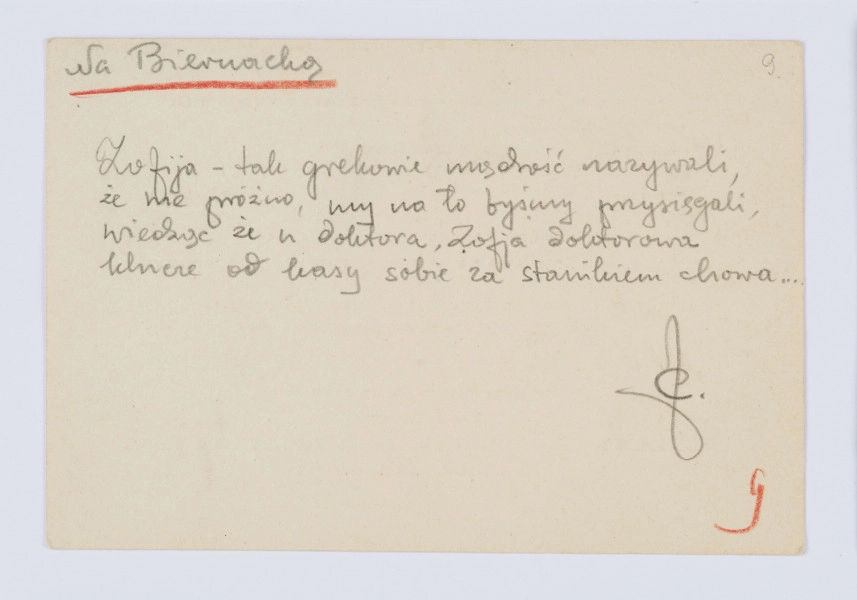 Na Biernacką
9.
Zofija – tak grekowie mądrość nazywali,
że nie próżno, my na to byśmy przysięgali,
wiedząc że u doktora, Zofja doktorowa
klucze od kasy sobie za stanikiem chowa...